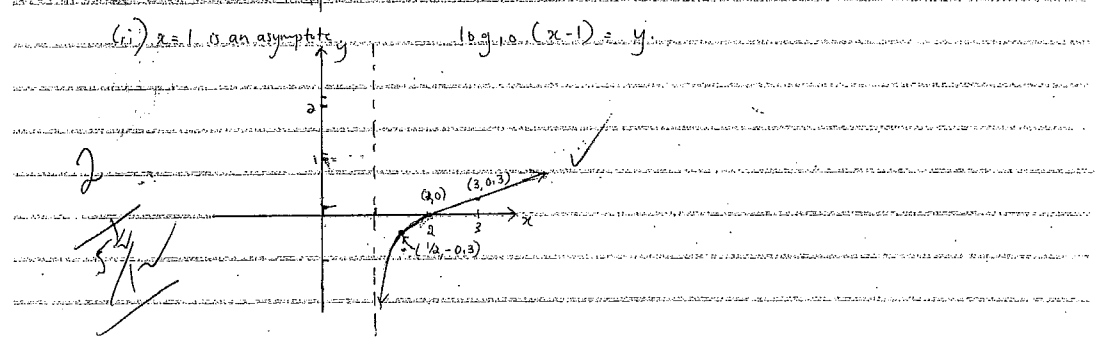 (ii) x = 1 is an asymptote
log10 (x-1) = y.
y
2
1
2
(2,0)
(3,0.3)
x
2
3
(1/2, -0.3)